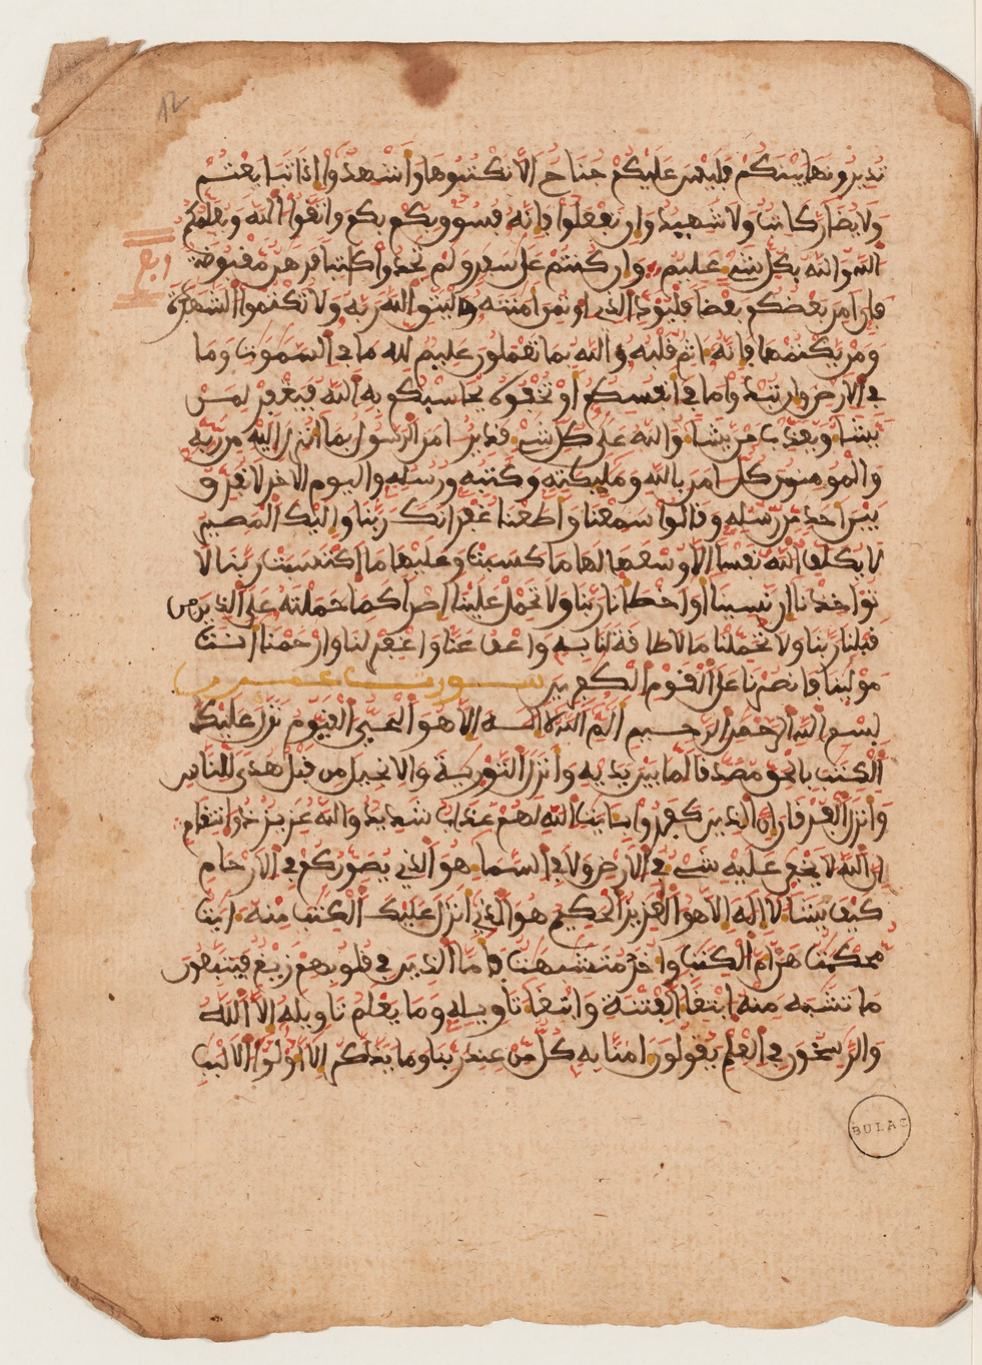 12
تديرونها بينكم فليس عليكم جناح الا تكتبوها واشهدوا اذا تبايعتم
ولا يضار كاتب ولا شهيد وان تفعلوا فانه فسوق بكم واتقوا الله ويعلمكم
الله والله بكل شيء عليم وان كنتم على سفر ولم تجدوا كاتبا فرهن مقبوضة
ربع
فان امن بعضكم بعضا فليؤد الذي اوتمن امنته وليتق الله ربه ولا تكتموا الشهدة
ومن يكتمها فانه اثم قلبه والله بما تعملون عليم لله ما في السموت وما
في الارض وان تبدوا ما في انفسكم او تخفوه يحاسبكم به الله فيغفر لمن
يشا ويعذب من يشا والله على كل شيء قدير امن الرسول بما انزل اليه من ربه
والمومنون كل امن بالله ومليكته وكتبه ورسله واليوم الاخر لا نفرق
بين احد من رسله وقالوا سمعنا واطعنا غفرانك ربنا واليك المصير
لا يكلف الله نفسا الا وسعها لها ما كسبت وعليها ما اكتسبت ربنا لا
تواخذنا ان نسينا او اخطانا ربنا ولا تحمل علينا اصرا كما حملته على الذين من
قبلنا ربنا ولا تحملنا ما لا طاقة لنا به واعف عنا واغفر لنا وارحمنا انت
مولينا فانصرنا على القوم الكفرين سورت عمرن
بسم الله الرحمن الرحيم الم الله لا اله الا هو الحي القيوم نزل عليك
الكتب بالحق مصدقا لما بين يديه وانزل التورية والانجيل من قبل هدى للناس
وانزل الفرقان ان الذين كفروا بايت الله لهم عذاب شديد والله عزيز ذو انتقام
ان الله لا يخفى عليه شيء في الارض ولا في السما هو الذي يصوركم في الارحام
كيف يشا لا اله الا هو العزيز الحكيم هو الذي انزل عليك الكتب منه ايت
محكمت هن ام الكتب واخر متشبهت فاما الذين في قلوبهم زيغ فيتبعون
ما تشبه منه ابتغا الفتنة وابتغا تاويله وما يعلم تاويله الا الله
والرسخون في العلم يقولون امنا به كل من عند ربنا وما يذكر الا اولوا الالبب
BULAC